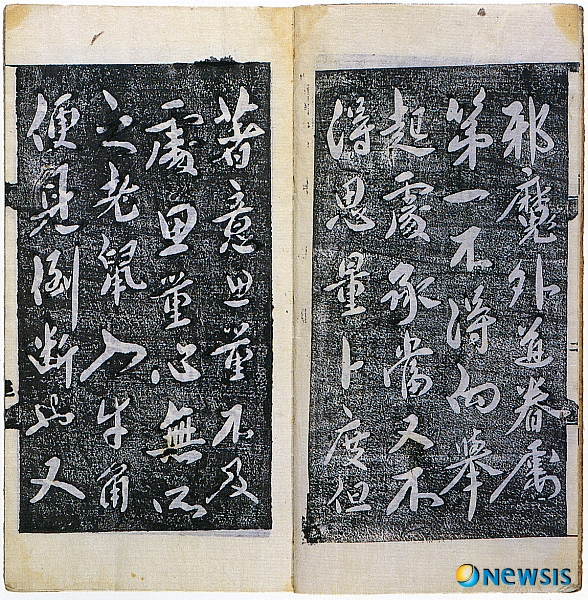 邪魔外道眷屬
第一不得向舉
起處承當又不
得思量卜度但
著意思量不及
處思量心無所
之老鼠入牛角
便見倒斷也又
Newsis